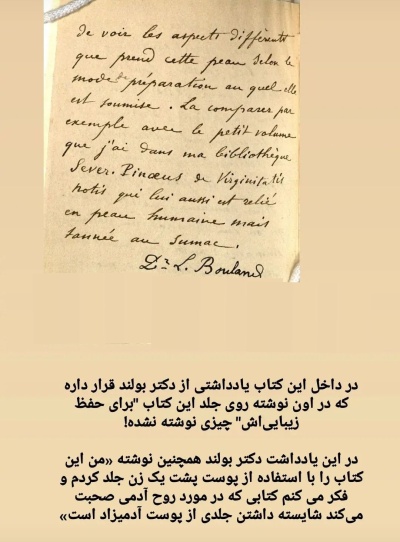 de voir les aspects différents
que prend cette peau selon le
mode de préparation auquel elle
est soumise. La comparer par
exemple avec le petit volume
que j'ai dans ma bibliothèque
Sever. Pinœus de Virginitatis
notis qui lui aussi est relié
en peau humaine mais
tannée au sumac.
Dr L. Bouland
در داخل این کتاب یادداشتی از دکتر بولند قرار داره
که در اون نوشته روی جلد این کتاب "برای حفظ
زیبایی‌اش" چیزی نوشته نشده!
در این یادداشت دکتر بولند همچنین نوشته «من این
کتاب را با استفاده از پوست پشت یک زن جلد کردم و
فکر می کنم کتابی که در مورد روح آدمی صحبت
می‌کند شایسته داشتن جلدی از پوست آدمیزاد است»